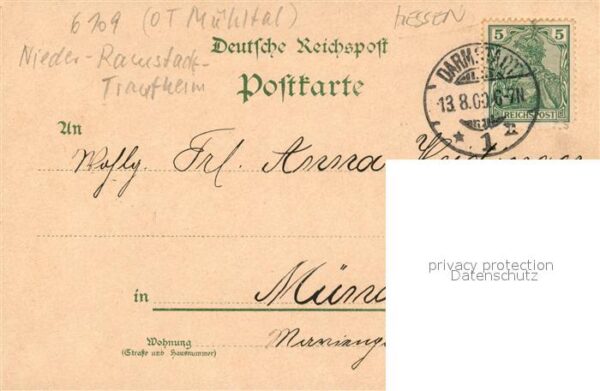 6109 (OT Mühltal) HESSEN
Nieder-Ramstadt-
Trautheim
Deutsche Reichspost
Postkarte
5 5
REICHSPOST
DARMSTADT
13.8.00.6-7N.
* 1 *
An
Wohlg. Frl. Anna
privacy protection
Datenschutz
in
Wohnung
(Straße und Hausnummer)